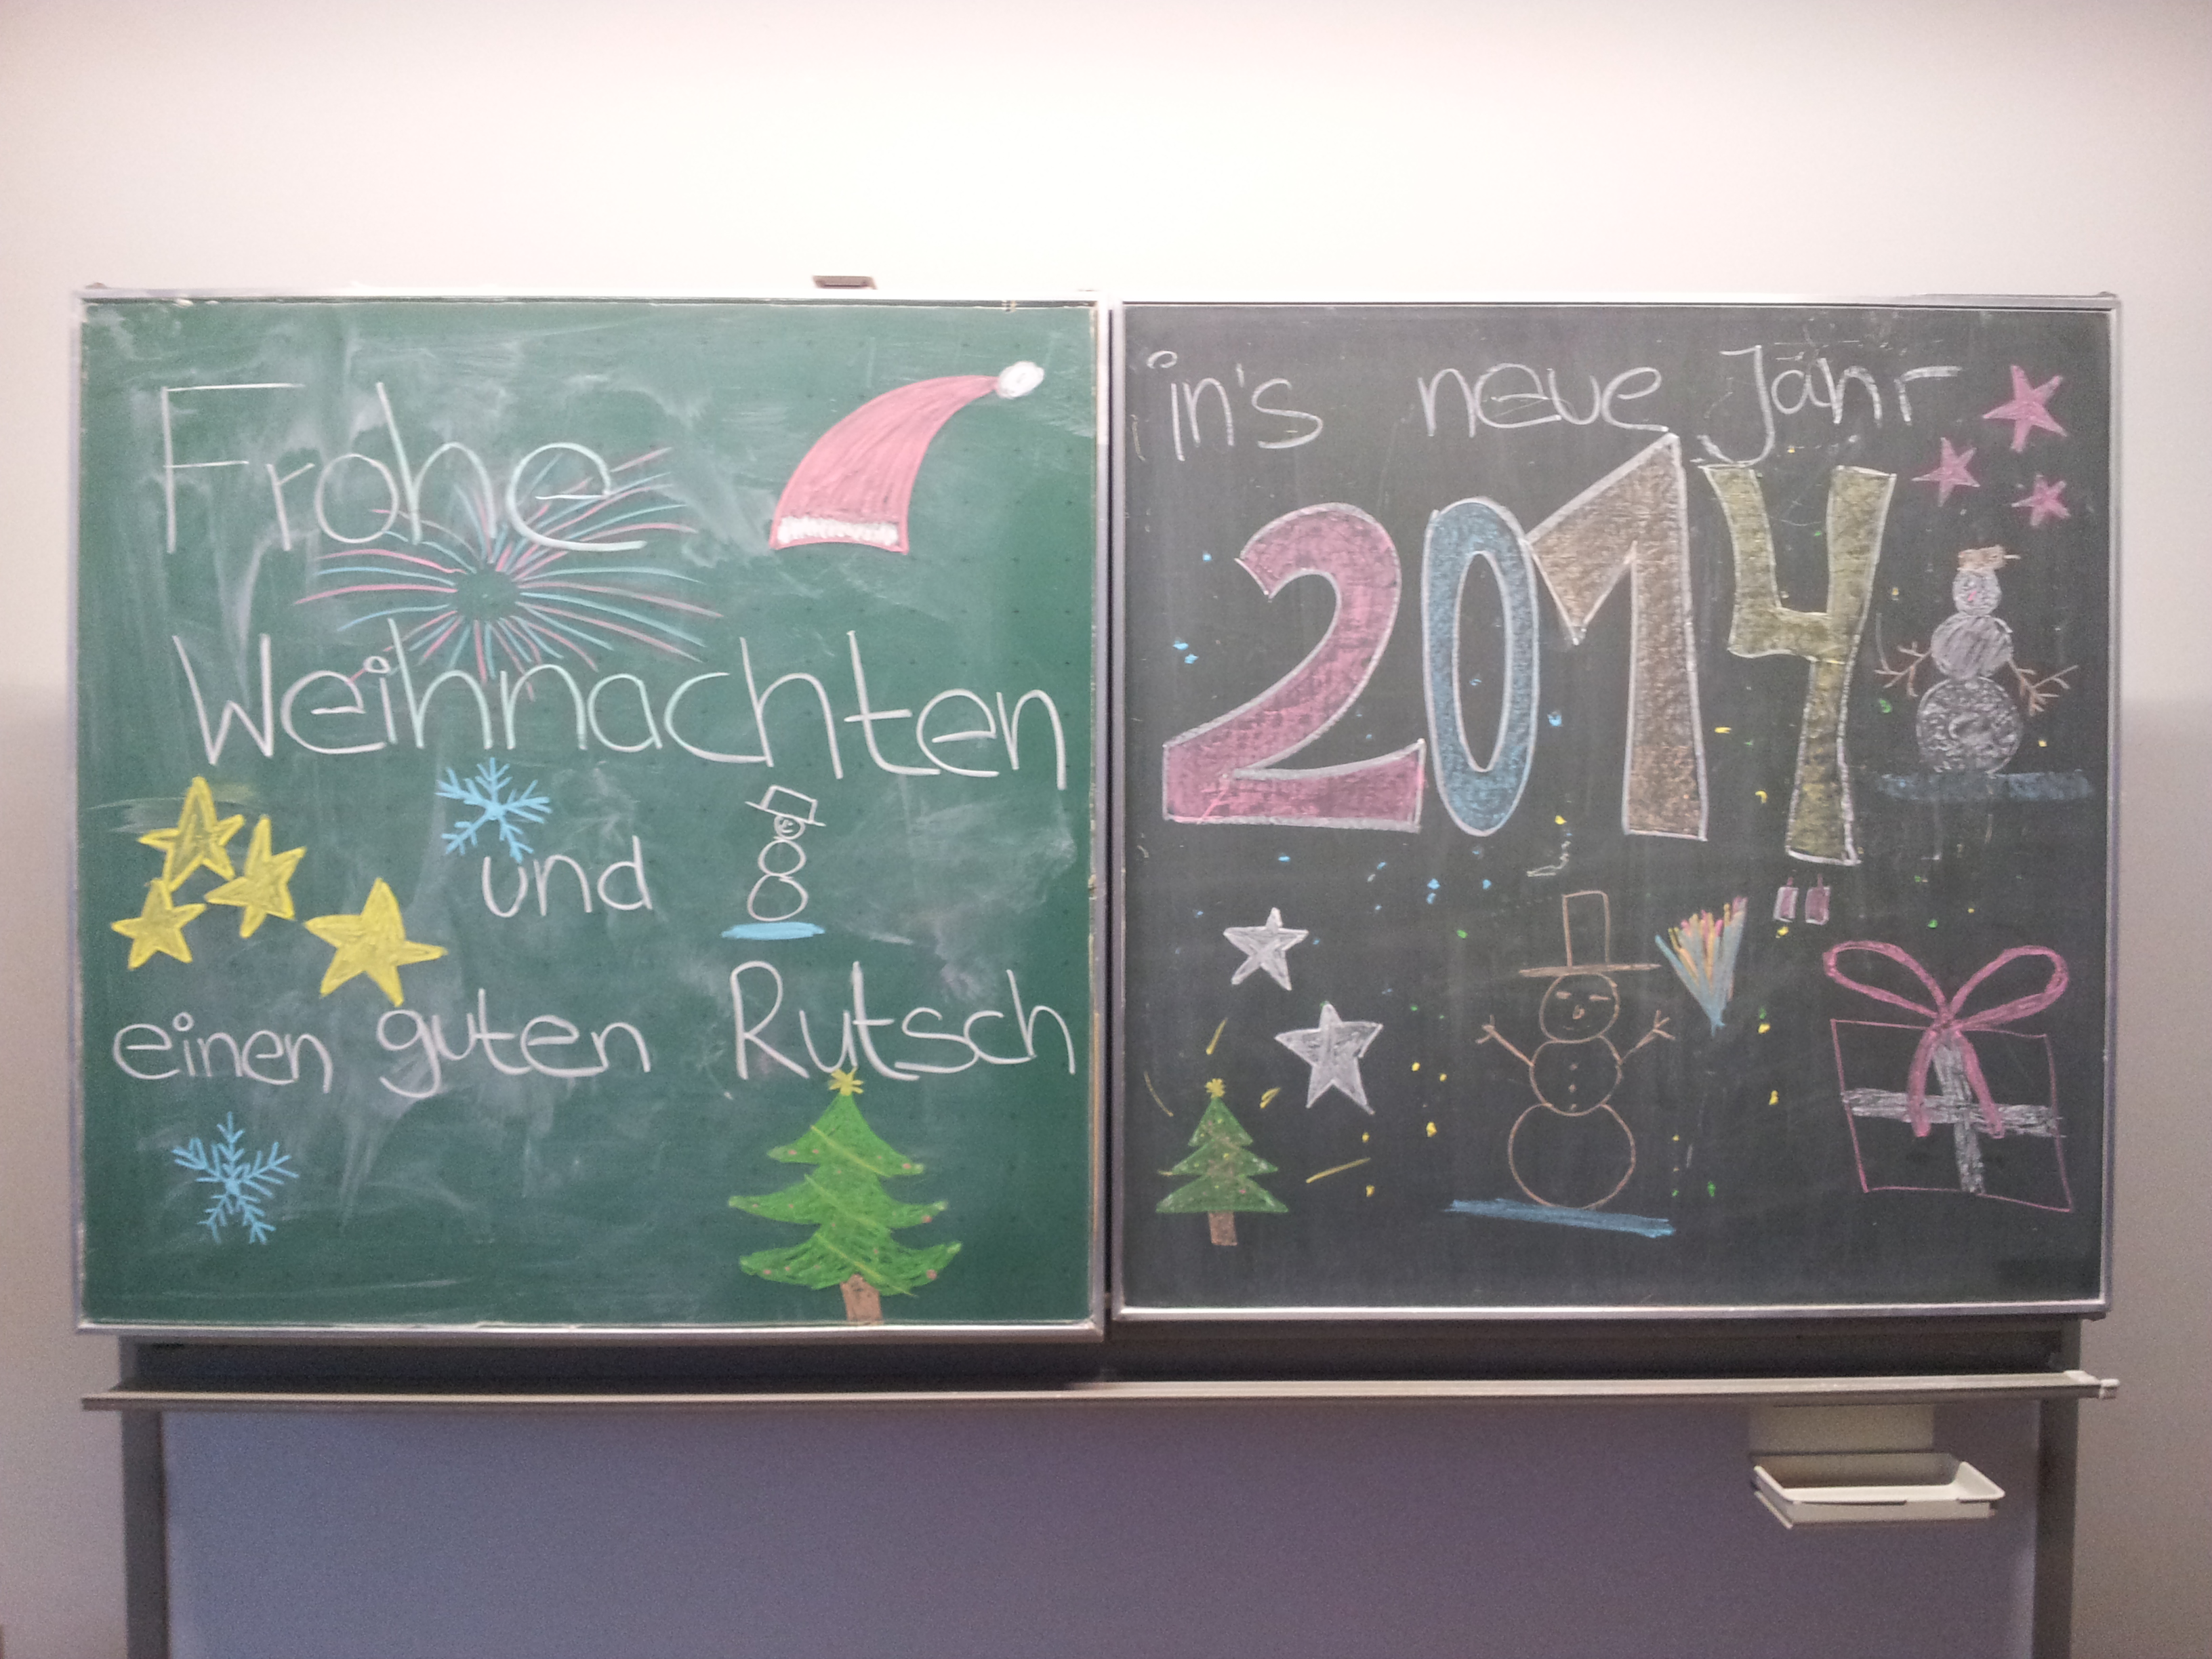 Frohe
Weihnachten
und
einen guten Rutsch
in's neue Jahr
2014